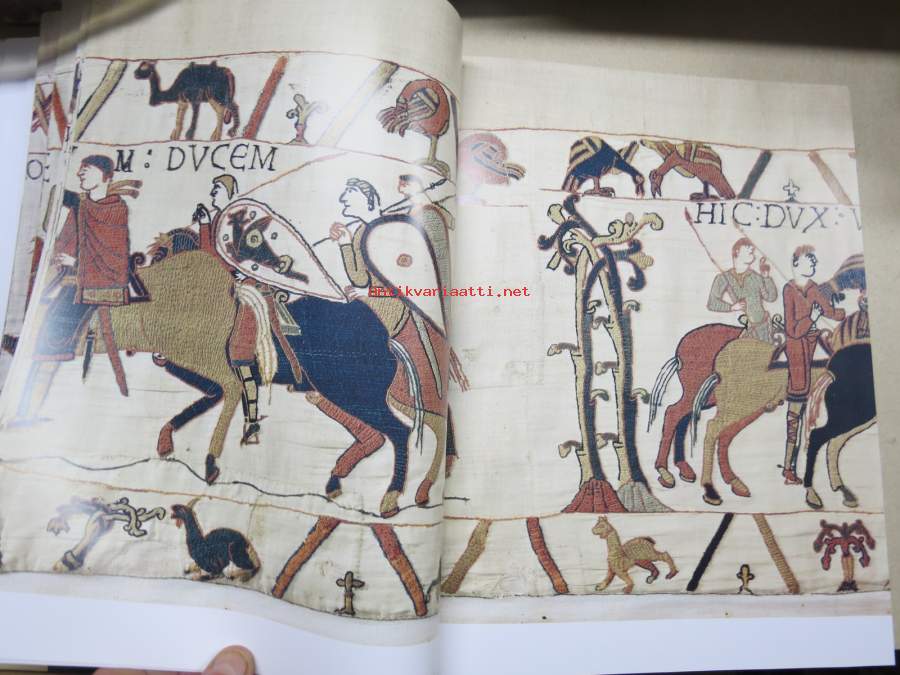 M : DVCEM
HIC : DVX :
antikvariaatti.net